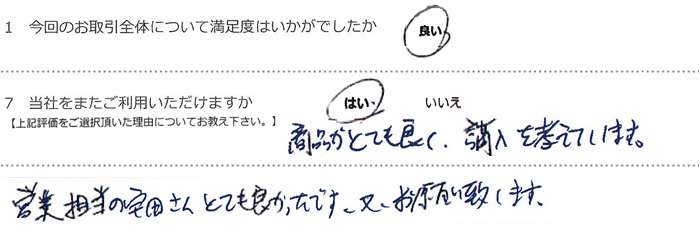 1 今回のお取引全体について満足度はいかがでしたか 良い
7 当社をまたご利用いただけますか はい、 いいえ
【上記評価をご選択頂いた理由についてお教え下さい。】
商品がとても良く、購入を考えています。
営業担当の宅田さんとても良かったです。又、お願い致します。